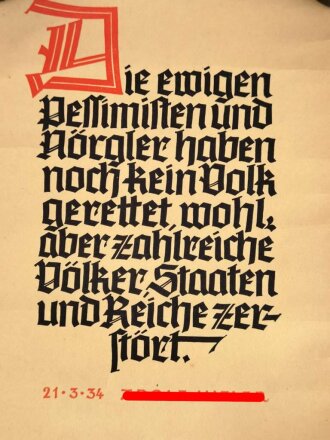 Die ewigen
Pessimisten und
Nörgler haben
noch kein Volk
gerettet, wohl
aber zahlreiche
Völker, Staaten
und Reiche zer-
stört.
21·3·34